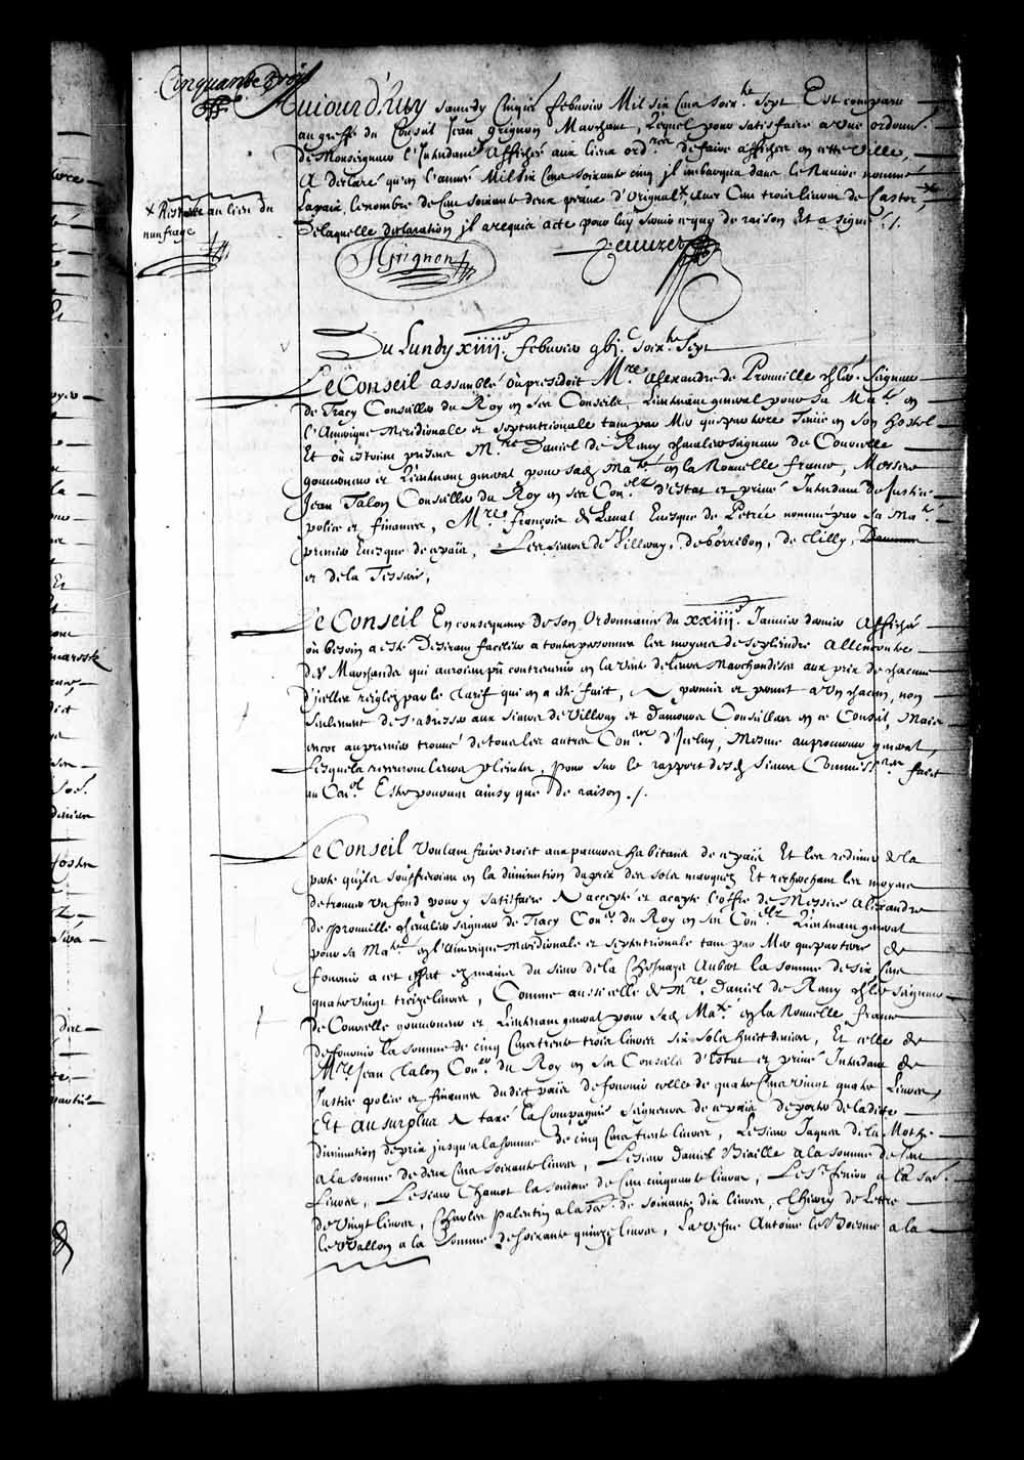 Cinquante trois
Aujourd'huy samedy Cinqie febvrier Mil six Cens soixte Sept Est comparu
au greffe du Conseil Jean Grignon Marchant, Lequel pour satisfaire a une ordonn
de Monseigneur l'Intendant Affichée aux lieux ordres de faire afficher en cette Ville,
A declaré qu'en l'année Mil six Cens soixante cinq il embarqua dans le Navire nommé
Lapaix le nombre de Cens soixante deux peaux d'Orignal x, avec Cent trois livres de Castor,
x Restée au lieu du
naufrage
De laquelle declaration il a requis acte pour luy servir ce que de raison Et a signé ./.
JGrignon
Peuuret
Du Lundy xiiiie febvrier gbi.c soixte Sept
Le Conseil assemblé où presidoit Mre Alexandre de Prouville chlr Seigneur
de Tracy Conseiller du Roy en ses Conseils, Lieutenant general pour Sa Maté en
l'Amerique Meridionale et Septentrionale tant par Mer que par terre Tenue en Son hostel
Et où estoient presens Mre Daniel de Remy chevalier seigneur de Courcelle
gouverneur et Lieutenant general pour sad Maté en la Nouvelle france, Messire
Jean Talon Conseiller du Roy en ses Conels d'Estat et privé Intendant de Justice
police et finances, Mre François de Laval Evesque de Petrée nommé par Sa Maté
premier Evesque de ce païs, Les sieurs de Villeray, de Gorribon, de Tilly,
et de la Tesserie,
Le Conseil En consequence de son Ordonnance du xxiiiie Janvier dernier Affichée
où besoin a esté Desirant faciliter a toutes personnes les moyens de se plaindre Allencontre
des Marchands qui auroient pû contrevenir en la vente de leurs Marchandises aux prix de chacune
d'icelles reiglez par le Tarif qui en a esté fait, A permis et permet a un chacun, non
seulement de s'adresser aux Sieurs de Villeray et Damours Conseillers en ce Conseil, Mais
encor au premier trouvé de tous les autres Coners d'Iceluy, Mesme au procureur general,
Lesquels recevront leurs plaintes, pour sur le rapport desd Sieurs Commissres fait
au Conel Estre pourveu ainsy que de raison ./.
Le Conseil Voulant faire droict aux pauvres habitans de ce païs Et les redimer de la
perte qu'ils souffriroient en la diminution du prix des sols marquez Et recherchant les moyens
de trouver un fond pour y satisfaire A accepté et accepte l'offre de Messire Alexandre
de Prouville chevalier seigneur de Tracy Coner du Roy en ses Conels Lieutenant general
pour Sa Maté en l'Amerique Meridionale et Septentrionale tant par Mer que par terre de
fournir a cet effet es mains du sieur de la Chesnaye Aubert la somme de six Cens
quatre vingt treize livres, Comme aussi celle de Mre Daniel de Remy chlr seigneur
de Courcelle gouverneur et Lieutenant general pour Sad Maté en la Nouvelle france
de fournir la somme de cinq Cens trente trois livres six sols huict deniers, Et celle de
Mre Jean Talon Coner du Roy en ses Conseils d'Estat et privé Intendant de
Justice police et finances dudict païs de fournir celle de quatre Cens vingt quatre Livres
Et Au surplus A taxé la Compagnie seigneurs de ce païs de porter de ladicte
diminution de prix jusqu'a la somme de cinq Cens trente livres, Le sieur Jaques de la Mothe
a la somme de deux Cens soixante livres, Le sieur Daniel Biaille a la somme de
Livres, Le sieur Chamot la somme de Cens cinquante livres, Le Sr feniou a la sac
de vingt livres, Charles Palentin a la Sae de soixante dix livres, Thierry de Lettre
le Wallon a la somme de soixante quinze livres, La vefve Antoine le Boesme a la